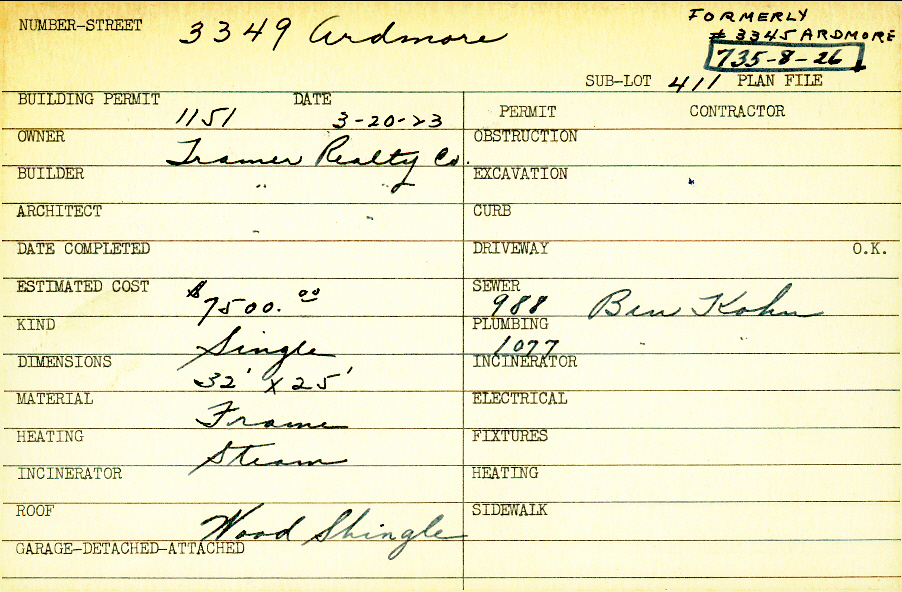 FORMERLY
NUMBER-STREET 3349 Ardmore # 3345 ARDMORE
735-8-26
SUB-LOT 411 PLAN FILE
BUILDING PERMIT DATE PERMIT CONTRACTOR
1151 3-20-23
OWNER Tramer Realty Co. OBSTRUCTION
BUILDER " " EXCAVATION
ARCHITECT " " CURB
DATE COMPLETED DRIVEWAY O.K.
ESTIMATED COST $7500.00 SEWER 988 Ben Kohn
KIND Single PLUMBING 1077 " "
DIMENSIONS 32' x 25' INCINERATOR
MATERIAL Frame ELECTRICAL
HEATING Steam FIXTURES
INCINERATOR HEATING
ROOF Wood Shingle SIDEWALK
GARAGE-DETACHED-ATTACHED